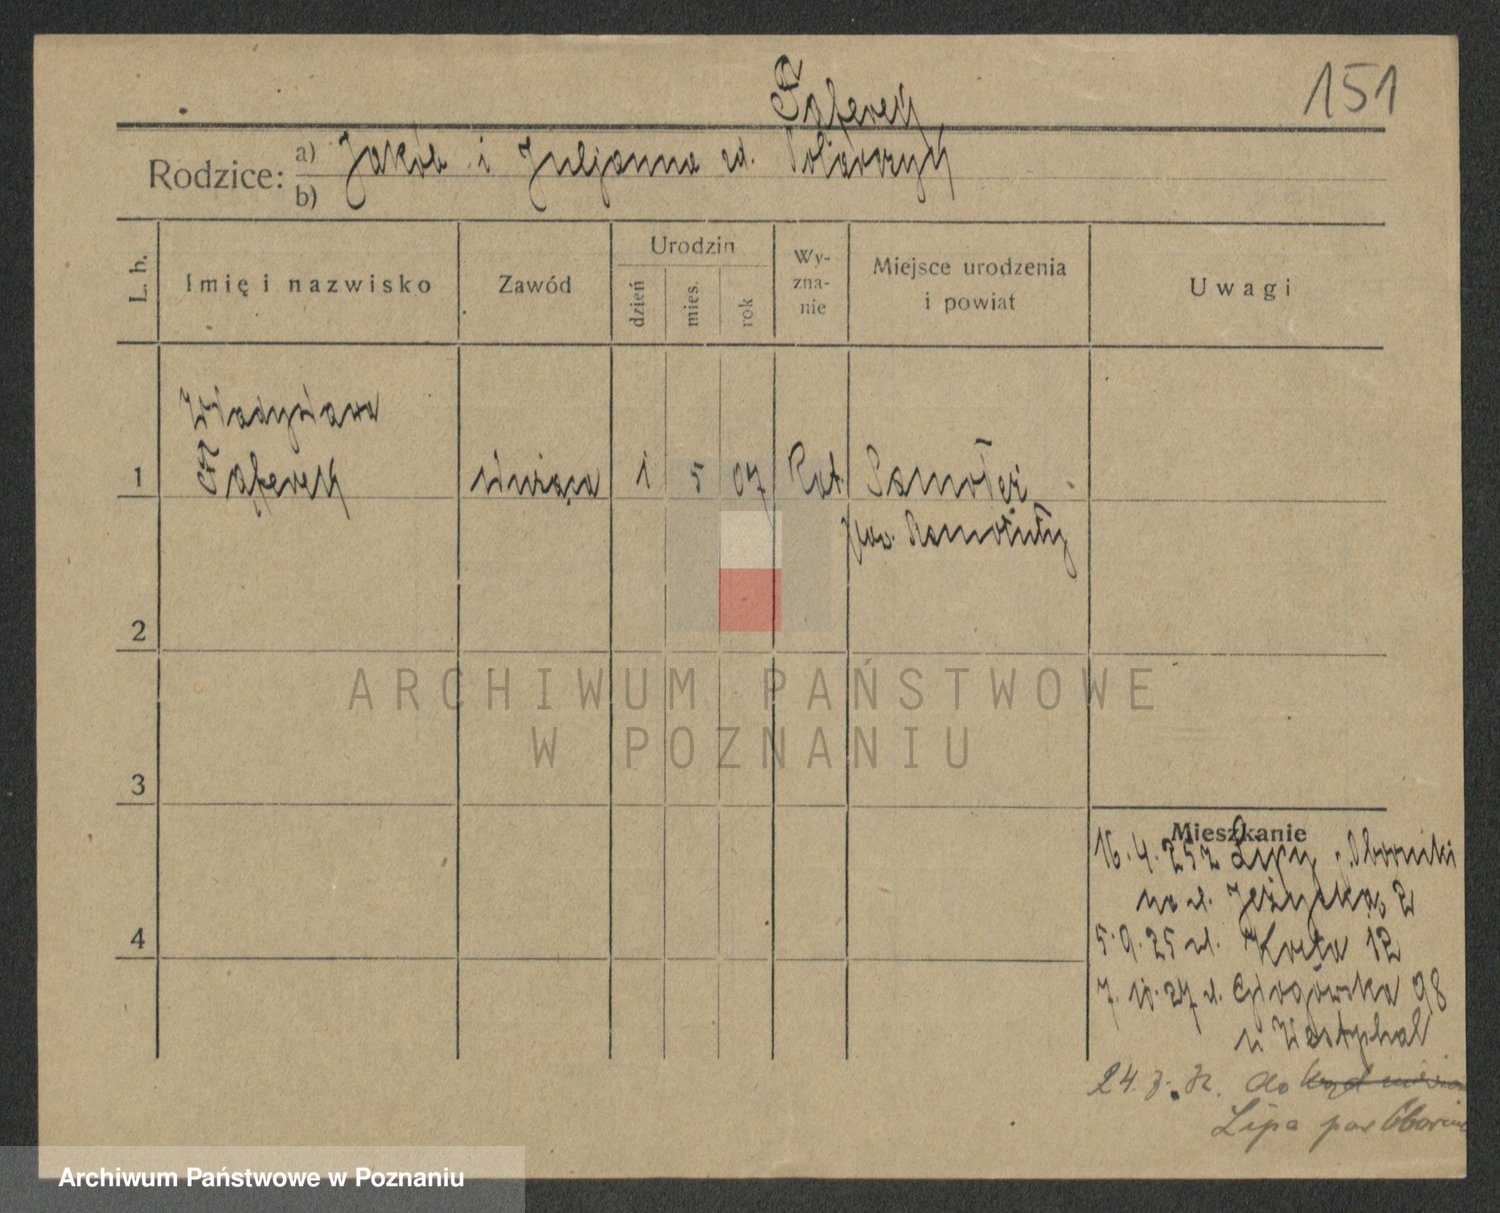 151
Rodzice: a) Jakób i Juljanna zd.
b)
L. b.
Imię i nazwisko
Zawód
Urodzin
dzień
mies.
rok
Wy-
zna-
nie
Miejsce urodzenia
i powiat
Uwagi
Władysława
1 służąca 1 5 07 Kat Samołęż
pow. Szamotuły
2
3
4
Mieszkanie
16.4.25 z Lipy, Oborniki
na ul. Jeżycka 2
5.9.25 ul. 12
7.10.27 ul. Głogowska 98
u Westphal
24. do
Lipa pow Oborniki
ARCHIWUM PAŃSTWOWE
W POZNANIU
Archiwum Państwowe w Poznaniu